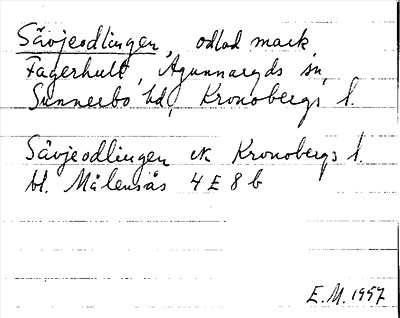 Sävjeodlingen, odlad mark,
Fagerhult, Agunnaryds sn,
Sunnerbo hd, Kronobergs l.
Sävjeodlingen ek Kronobergs l.
bl. Målensås 4 E 8 b
E.M. 1957